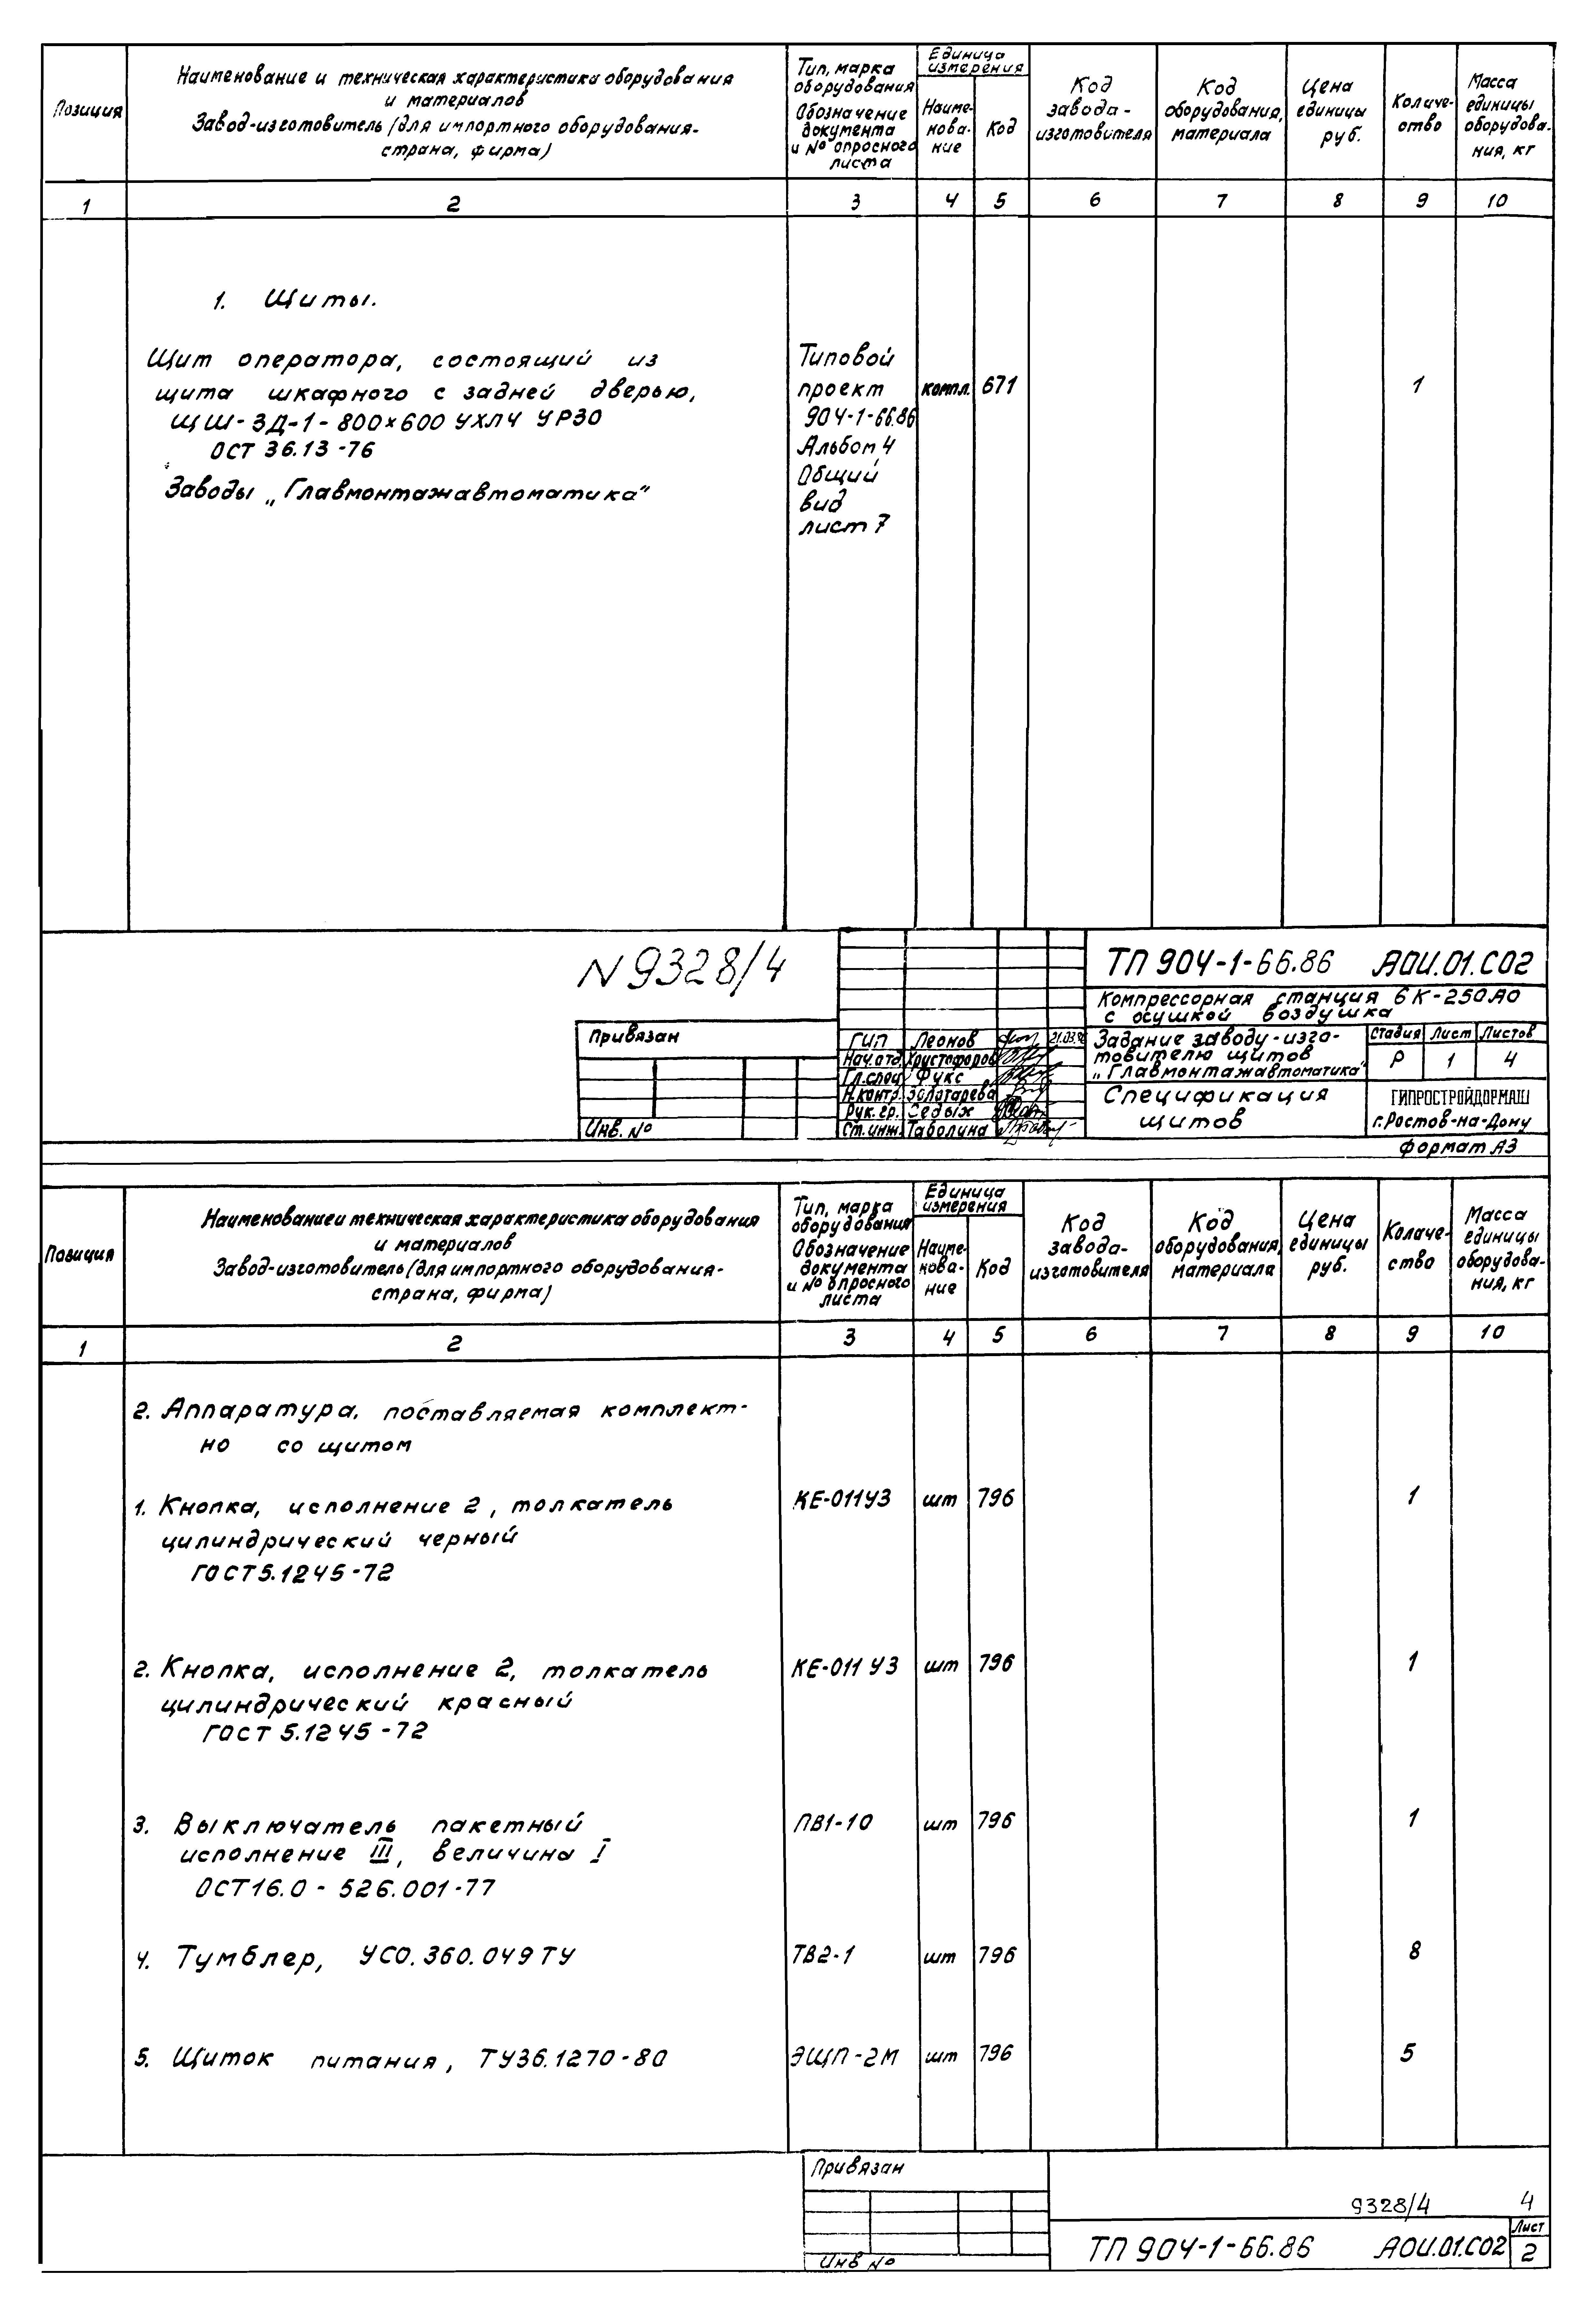 Позиция
Наименование и техническая характеристика оборудования
и материалов
Завод-изготовитель (для импортного оборудования-
страна, фирма)
Тип, марка
оборудования
Обозначение
документа
и № опросного
листа
Единица
измерения
Наиме-
нова-
ние
Код
Код
завода-
изготовителя
Код
оборудования,
материала
Цена
единицы
руб.
Количе-
ство
Масса
единицы
оборудова-
ния, кг
1 2 3 4 5 6 7 8 9 10
1. Щиты.
Щит оператора, состоящий из
щита шкафного с задней дверью,
ЩШ-ЗД-1-800×600 УХЛ4 УР30
ОСТ 36.13-76
Заводы „Главмонтажавтоматика"
Типовой
проект
904-1-66.86
Альбом 4
Общий
вид
лист 7
компл. 671 1
N 9328/4
Привязан
Инв. №
ГИП Леонов 21.03.86
Нач. отд. Христофоров
Гл. спец. Фукс
Н. контр. Золотарева
Рук. гр. Седых
Ст. инж. Таболина
ТП 904-1-66.86 АОИ.01.СО2
Компрессорная станция 6К-250АО
с осушкой воздушка
Задание заводу-изго-
товителю щитов
„Главмонтажавтоматика"
Стадия Лист Листов
Р 1 4
Спецификация
щитов
ГИПРОСТРОЙДОРМАШ
г. Ростов-на-Дону
Формат А3
Позиция
Наименование и техническая характеристика оборудования
и материалов
Завод-изготовитель (для импортного оборудования-
страна, фирма)
Тип, марка
оборудования
Обозначение
документа
и № опросного
листа
Единица
измерения
Наиме-
нова-
ние
Код
Код
завода-
изготовителя
Код
оборудования,
материала
Цена
единицы
руб.
Количе-
ство
Масса
единицы
оборудова-
ния, кг
1 2 3 4 5 6 7 8 9 10
2. Аппаратура, поставляемая комплект-
но со щитом
1. Кнопка, исполнение 2, толкатель КЕ-011У3 шт 796 1
цилиндрический черный
ГОСТ 5.1245-72
2. Кнопка, исполнение 2, толкатель КЕ-011 У3 шт 796 1
цилиндрический красный
ГОСТ 5.1245-72
3. Выключатель пакетный ПВ1-10 шт 796 1
исполнение III, величина I
ОСТ16.0-526.001-77
4. Тумблер, УСО.360.049 ТУ ТВ2-1 шт 796 8
5. Щиток питания, ТУ36.1270-80 ЭЩП-2М шт 796 5
Привязан
Инв №
9328/4 4
ТП 904-1-66.86 АОИ.01.СО2
Лист
2